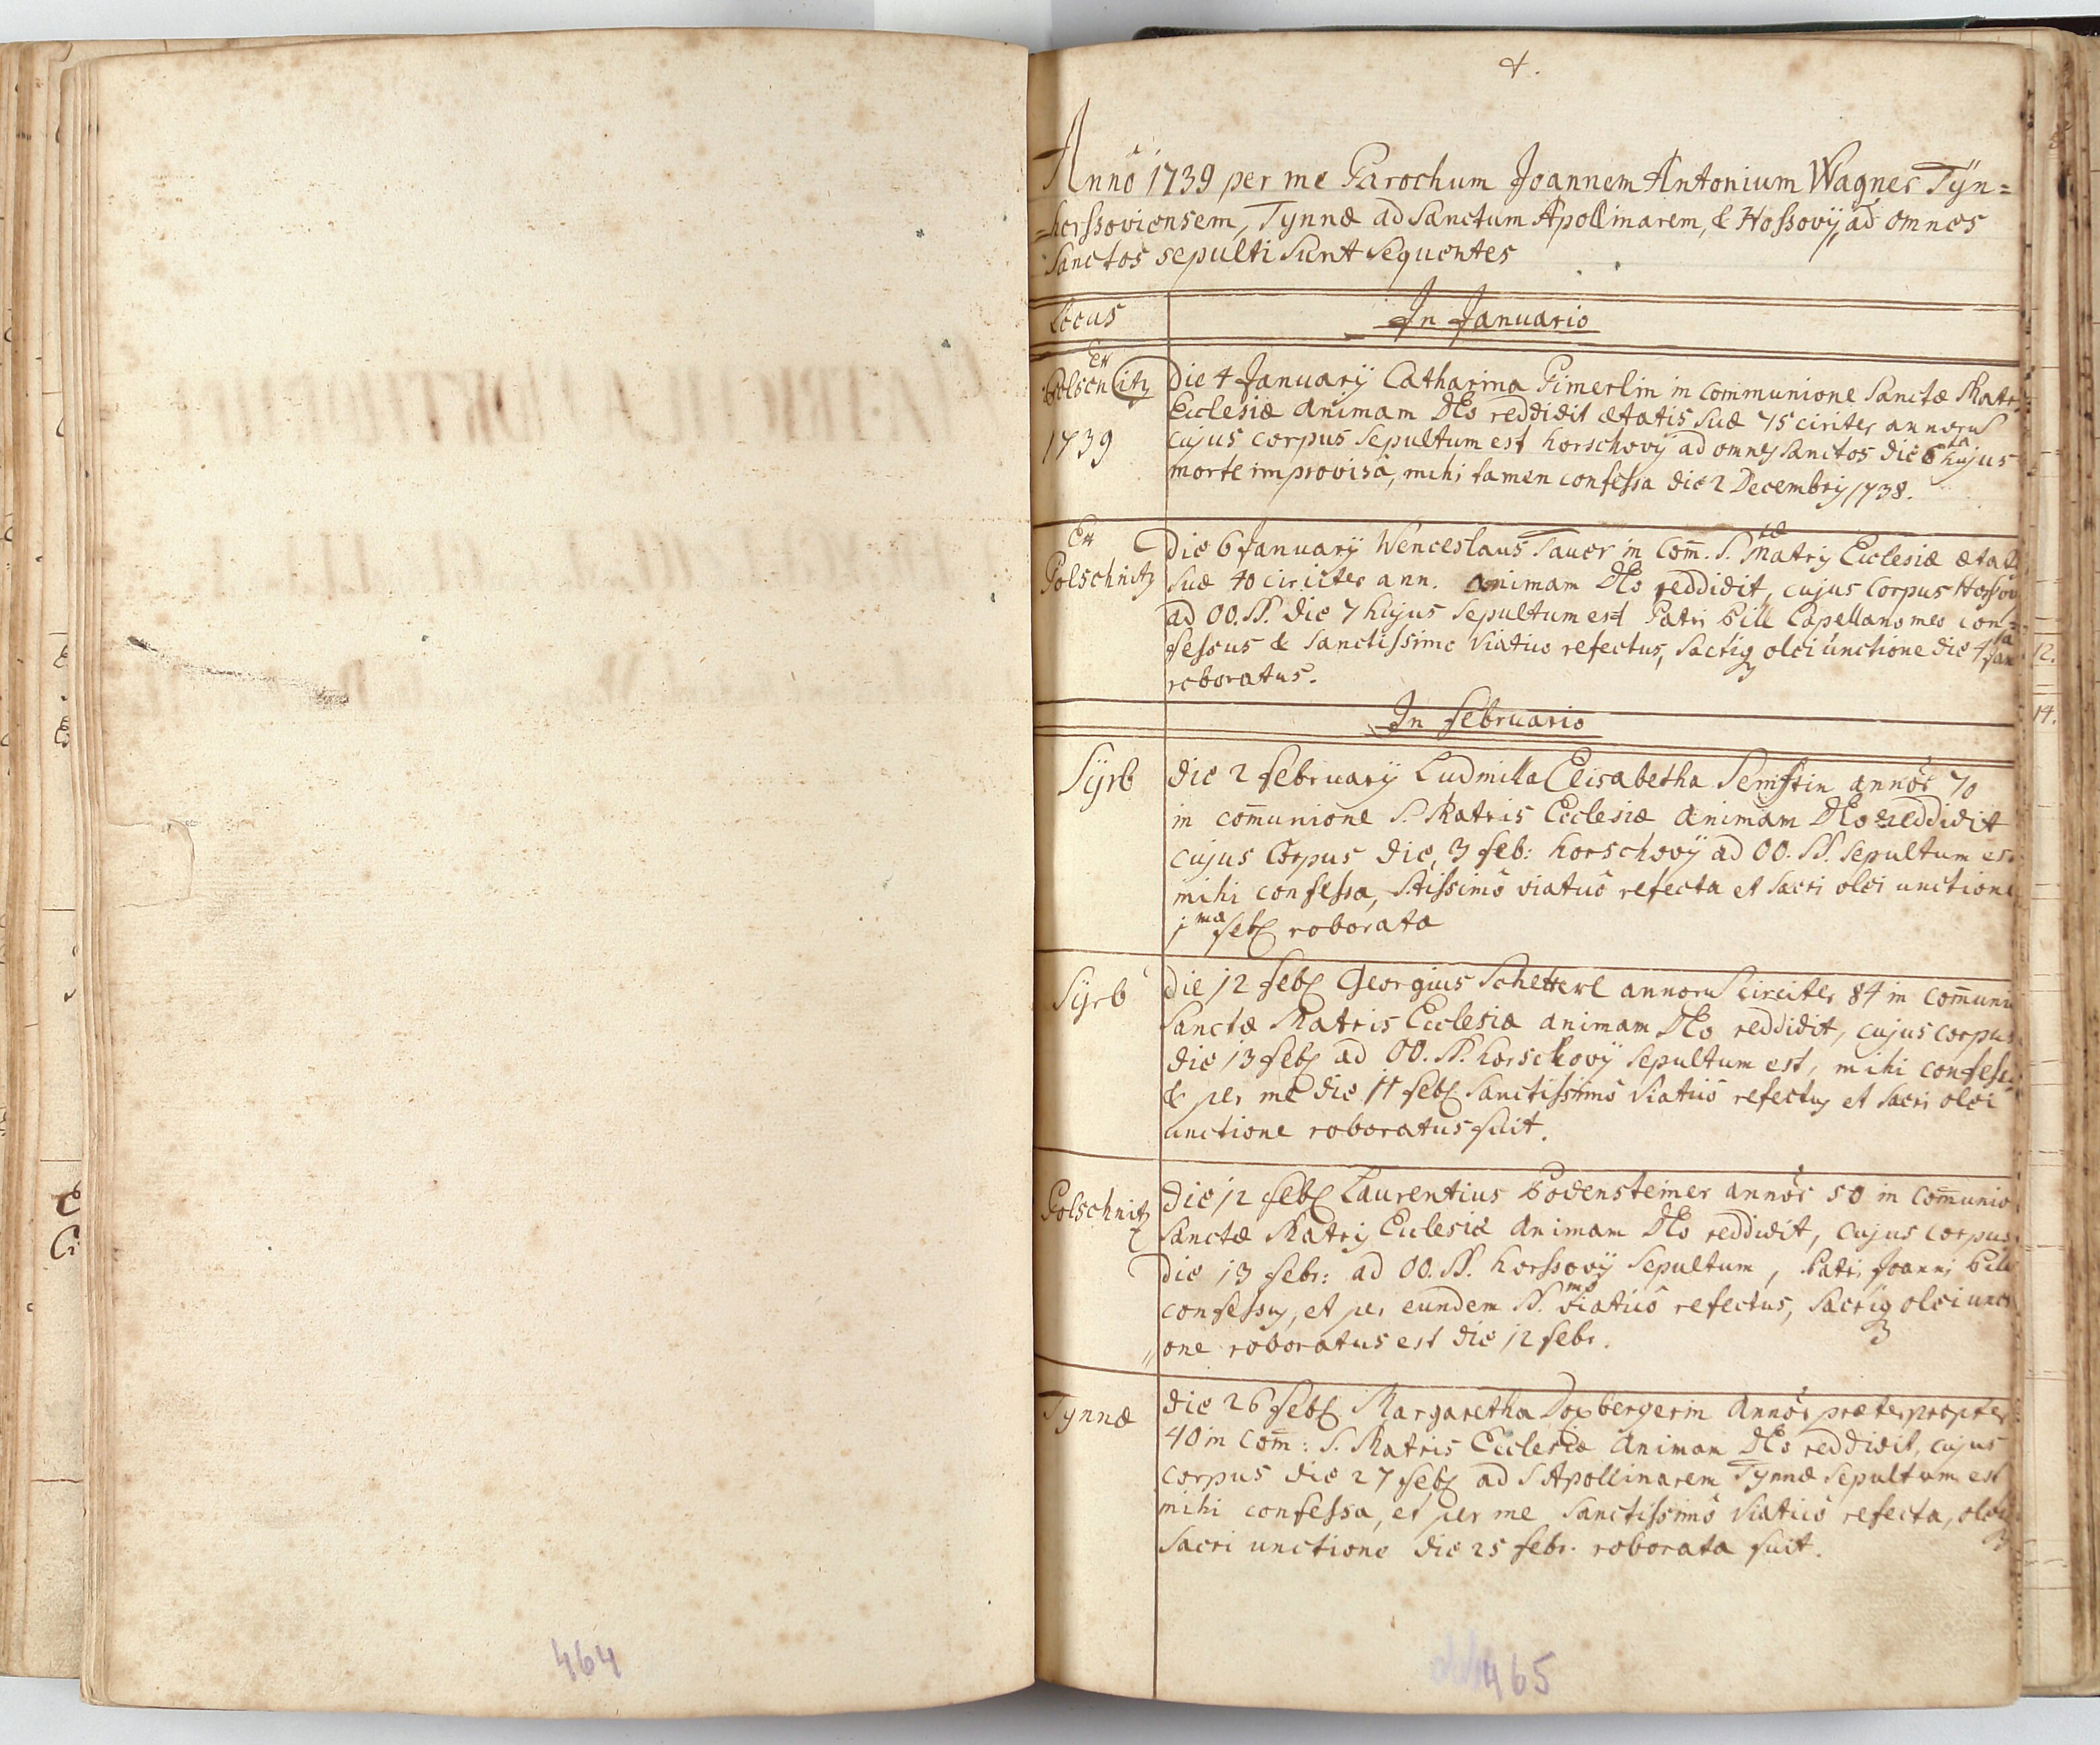 4.
Anno 1739 per me Parochum Joannem Antonium Wagner Tÿn=
=horssoviensem, Tynnæ ad Sanctum Apollinarem, & Hossovÿ, ad omnes
Sanctos sepulti sunt sequentes
Locus
In Januario
Ex
Polschitz
1739
Die 4 Januarÿ Catharina Pimerlin in communione Sanctæ Matr
Ecclesiæ animam Deo reddidit ætatis suæ 75 ciriter annoru
cujus corpus sepultum est horschovÿ ad omnes Sanctos die 6ta hujus
morte improvisâ, mihi tamen confessa die 2 Decembris 1738.
Ex
Polschnitz
Die 6 Januarÿ Wenceslaus Tauer in Com̄. S.tæ Matris Ecclesiæ ætat
suæ 40 ciriciter ann. animam Deo reddidit, cujus corpus Horssov
ad OO. SS. die 7 hujus sepultum est Patri Bill Capellano meo con=
fessus & Sanctissimo Viatico refectus, Sacriq olei unctione die 4ta Jan
roboratus.
In Februario
Sÿrb
die 2 Februarÿ Ludmilla Elisabetha annor 70
in com̄unione S. Matris Ecclesiæ animam Deo reddidit
cujus Corpus die, 3 feb: horschovÿ ad OO. SS. sepultum es
mihi confessa, Stissimô viaticô refecta et sacri olei unctione
1ma feb roborata
Sÿrb
Die 12 feb Georgius Schetterl annoru circiter 84 in com̄uni
Sanctæ Matris Ecclesiæ animam Deo reddidit, cujus corpus
die 13 feb ad OO. SS. horschovÿ sepultum est, mihi confess
& per me die 11 feb Sanctissimô Viaticô refectus et sacri olei
unctione roboratus fuit.
Polschnitz
Die 12 feb Laurentius Bodensteiner annor 50 in com̄unio
Sanctæ Matris Ecclesiæ animam Deo reddidit, cujus corpus
die 13 febr: ad OO. SS. horssovÿ sepultum, Patri Joanni Bill
confessus, et per eundem SS.mô viaticô refectus, sacriq olei uncti
one roboratus est die 12 febr.
Tynnæ
die 26 feb Margaretha Doxbergerin annor præterpropter
40 in com̄: S. Matris Ecclesiæ animam Deo reddidit, cujus
corpus die 27 feb ad S Apollinarem Tynnæ sepultum est
mihi confessa, et per me Sanctissimô Viaticô refecta, olei
sacri unctione die 25 febr. roborata fuit.
12.
14.
464
465